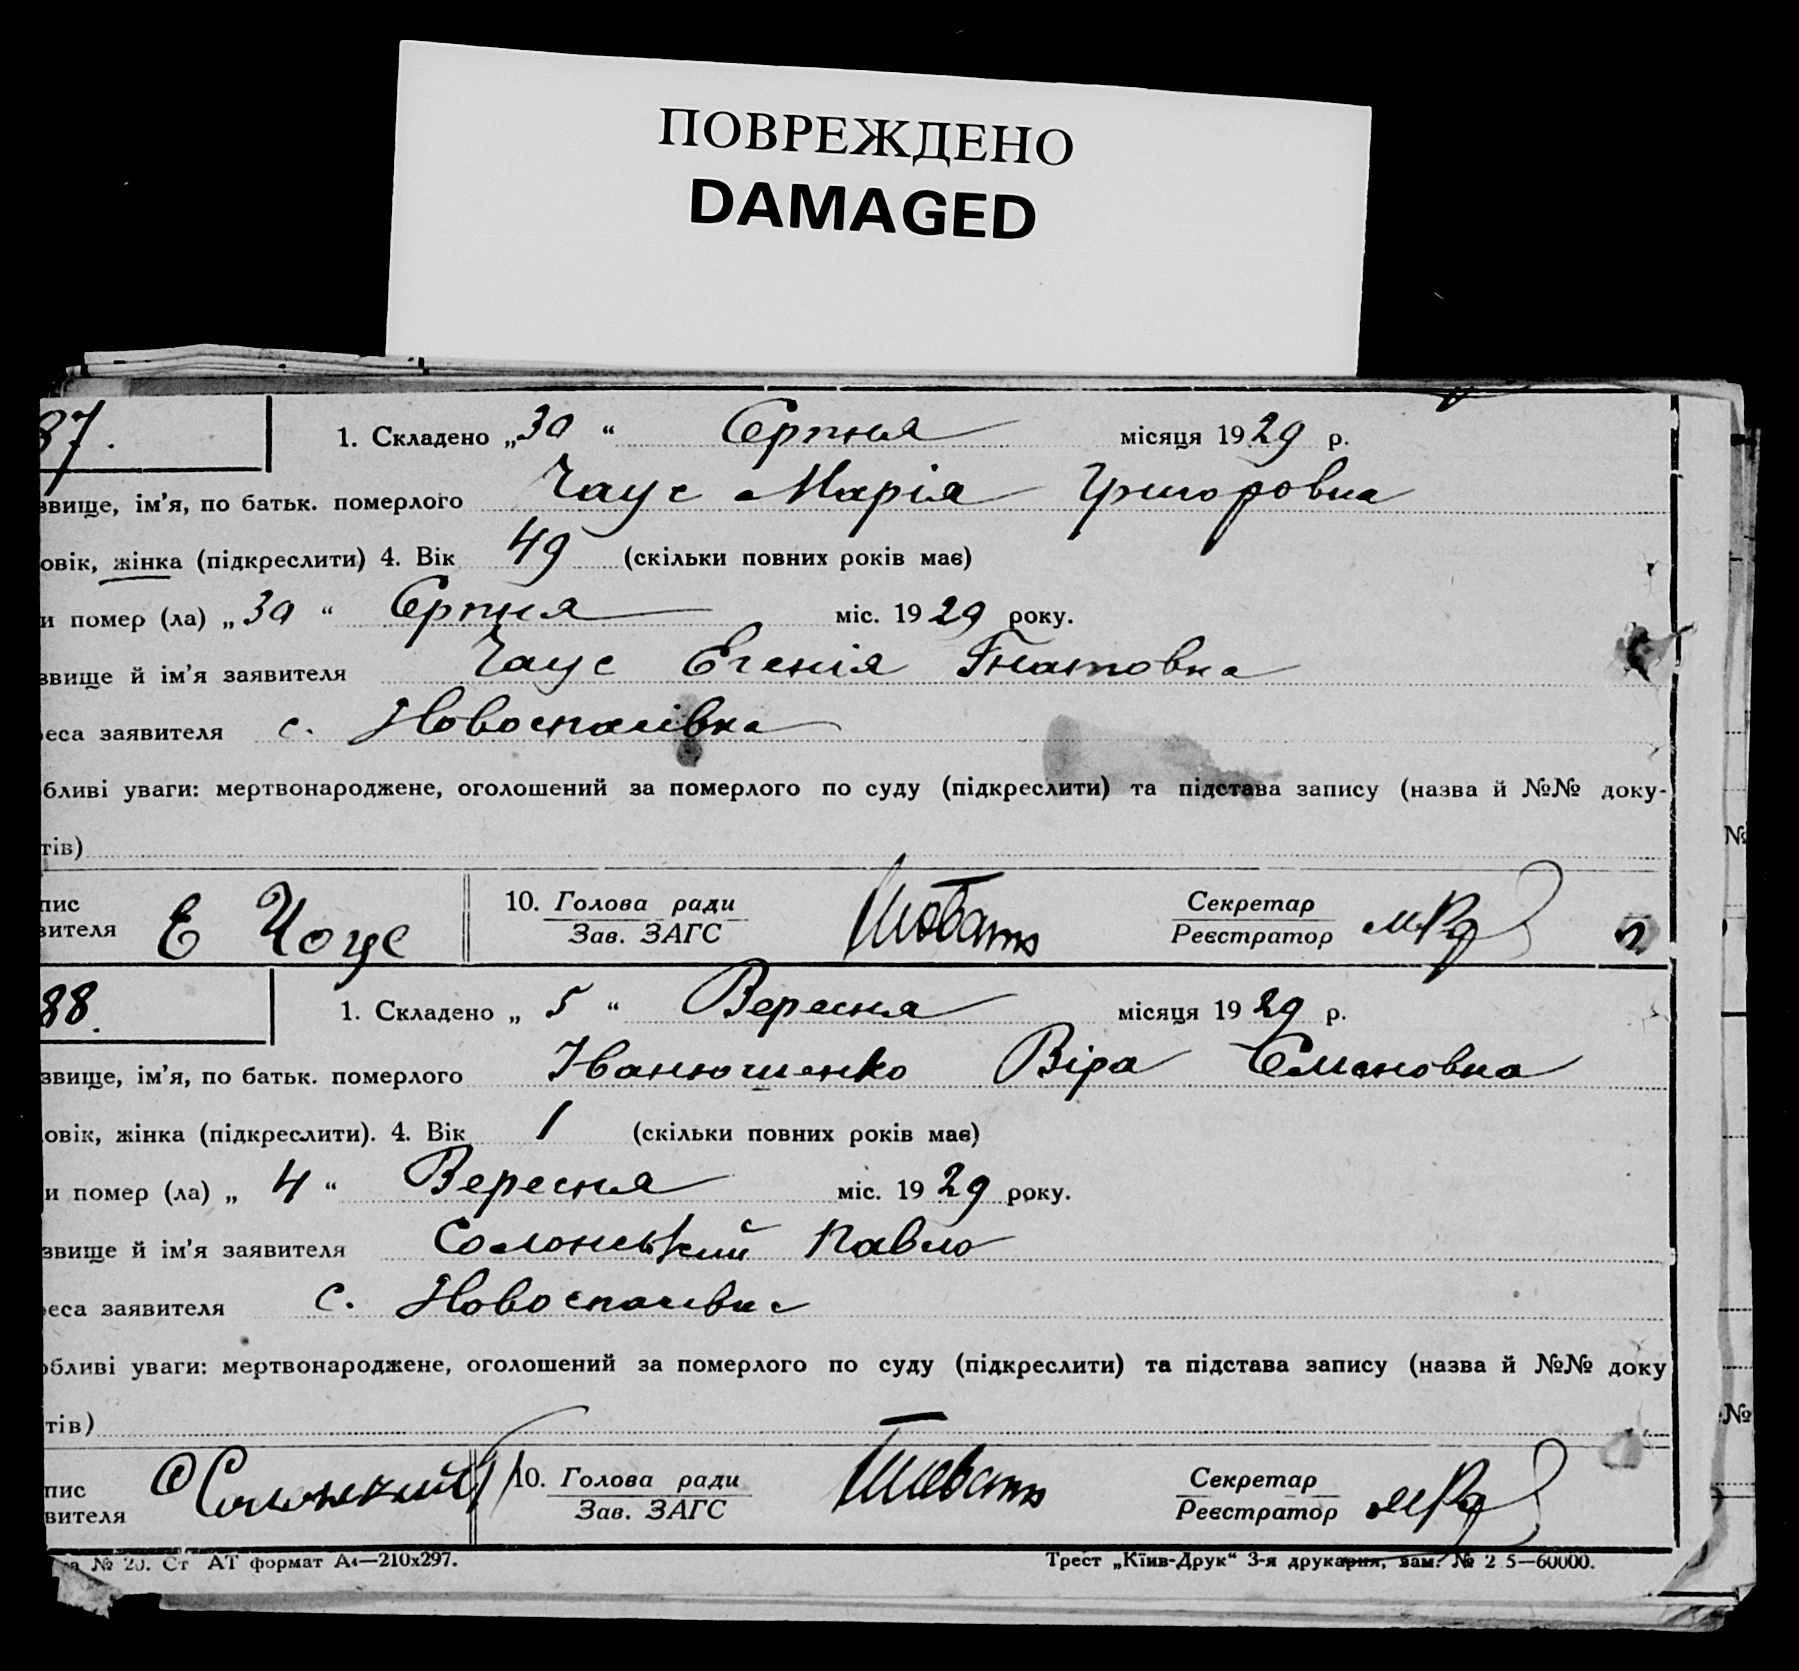 ПОВРЕЖДЕНО
DAMAGED
87.
1. Складено „30“ Серпня місяця 1929 р.
звище, ім'я, по батьк. померлого Чаус Марія Григоровна
овік, жінка (підкреслити) 4. Вік 49 (скільки повних років має)
и помер (ла) „30“ Серпня міс. 1929 року.
звище й ім'я заявителя Чаус Євгенія Гнатовна
реса заявителя с. Новоспасівка
бливі уваги: мертвонароджене, оголошений за померлого по суду (підкреслити) та підстава запису (назва й №№ доку-
тів)
пис
вителя Е Чоус
10. Голова ради
Зав. ЗАГС
Секретар
Реєстратор
88.
1. Складено „5“ Вересня місяця 1929 р.
звище, ім'я, по батьк. померлого Іванюшенко Віра Семеновна
овік, жінка (підкреслити). 4. Вік 1 (скільки повних років має)
и помер (ла) „4“ Вересня міс. 1929 року.
звище й ім'я заявителя Солонський Павло
реса заявителя с. Новоспасівка
обливі уваги: мертвонароджене, оголошений за померлого по суду (підкреслити) та підстава запису (назва й №№ доку
тів)
пис
вителя
10. Голова ради
Зав. ЗАГС
Секретар
Реєстратор
№ 20. Ст АТ формат А4—210х297.
Трест „Київ-Друк“ 3-я друкарня, зам. № 2 5—60000.
№
№